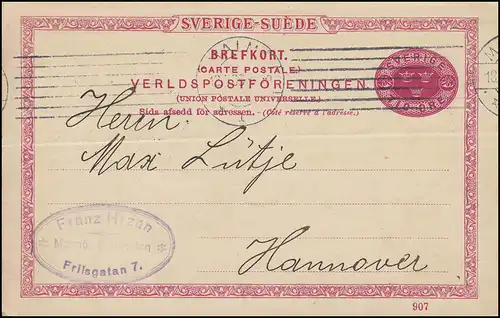 SVERIGE-SUÈDE
BREFKORT.
(CARTE POSTALE.)
VERLDSPOSTFÖRENINGEN.
(UNION POSTALE UNIVERSELLE.)
Sida afsedd för adressen. - (Côté réservé à l'adresse.)
SVERIGE
TIO ÖRE
Herrn
Max Lütje
Hannover
Franz
Friisgatan 7.
907